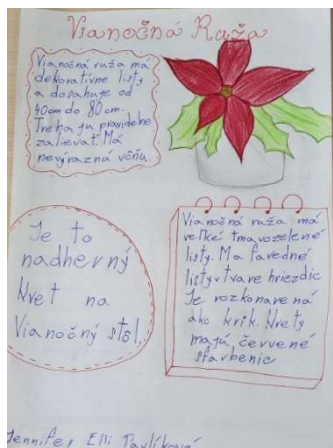 Vianočná Ruža
Vianočná ruža má
dekoratívne listy
a dosahuje od
40cm do 80cm.
Treba ju pravidelne
zalievať. Má
nevýraznú vôňu.
Je to
nadherný
kvet na
Vianočný stôl.
Vianočná ruža má
veľké tmavozelené
listy. Ma faredné
listy v tvare hviezdic
Je rozkonarená
ako krík. Kvety
majú červené
sfarbenie
Jennifer Elli Pavlíková